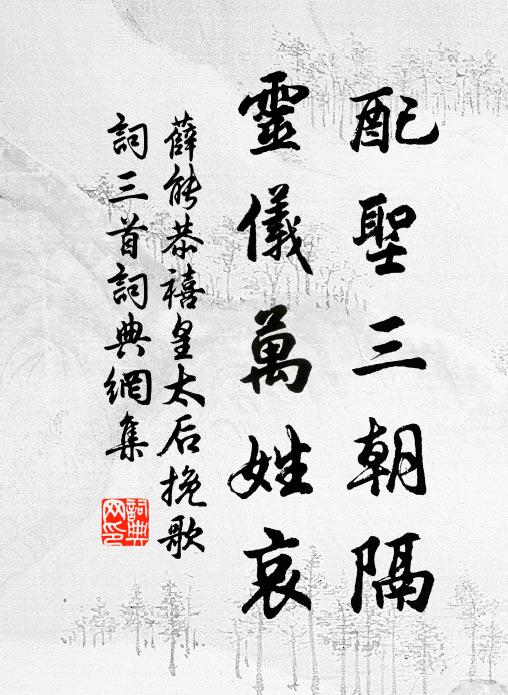 配聖三朝隔
靈儀萬姓哀
薛能恭禧皇太后挽歌
詞三首詞典網集
詞典网印